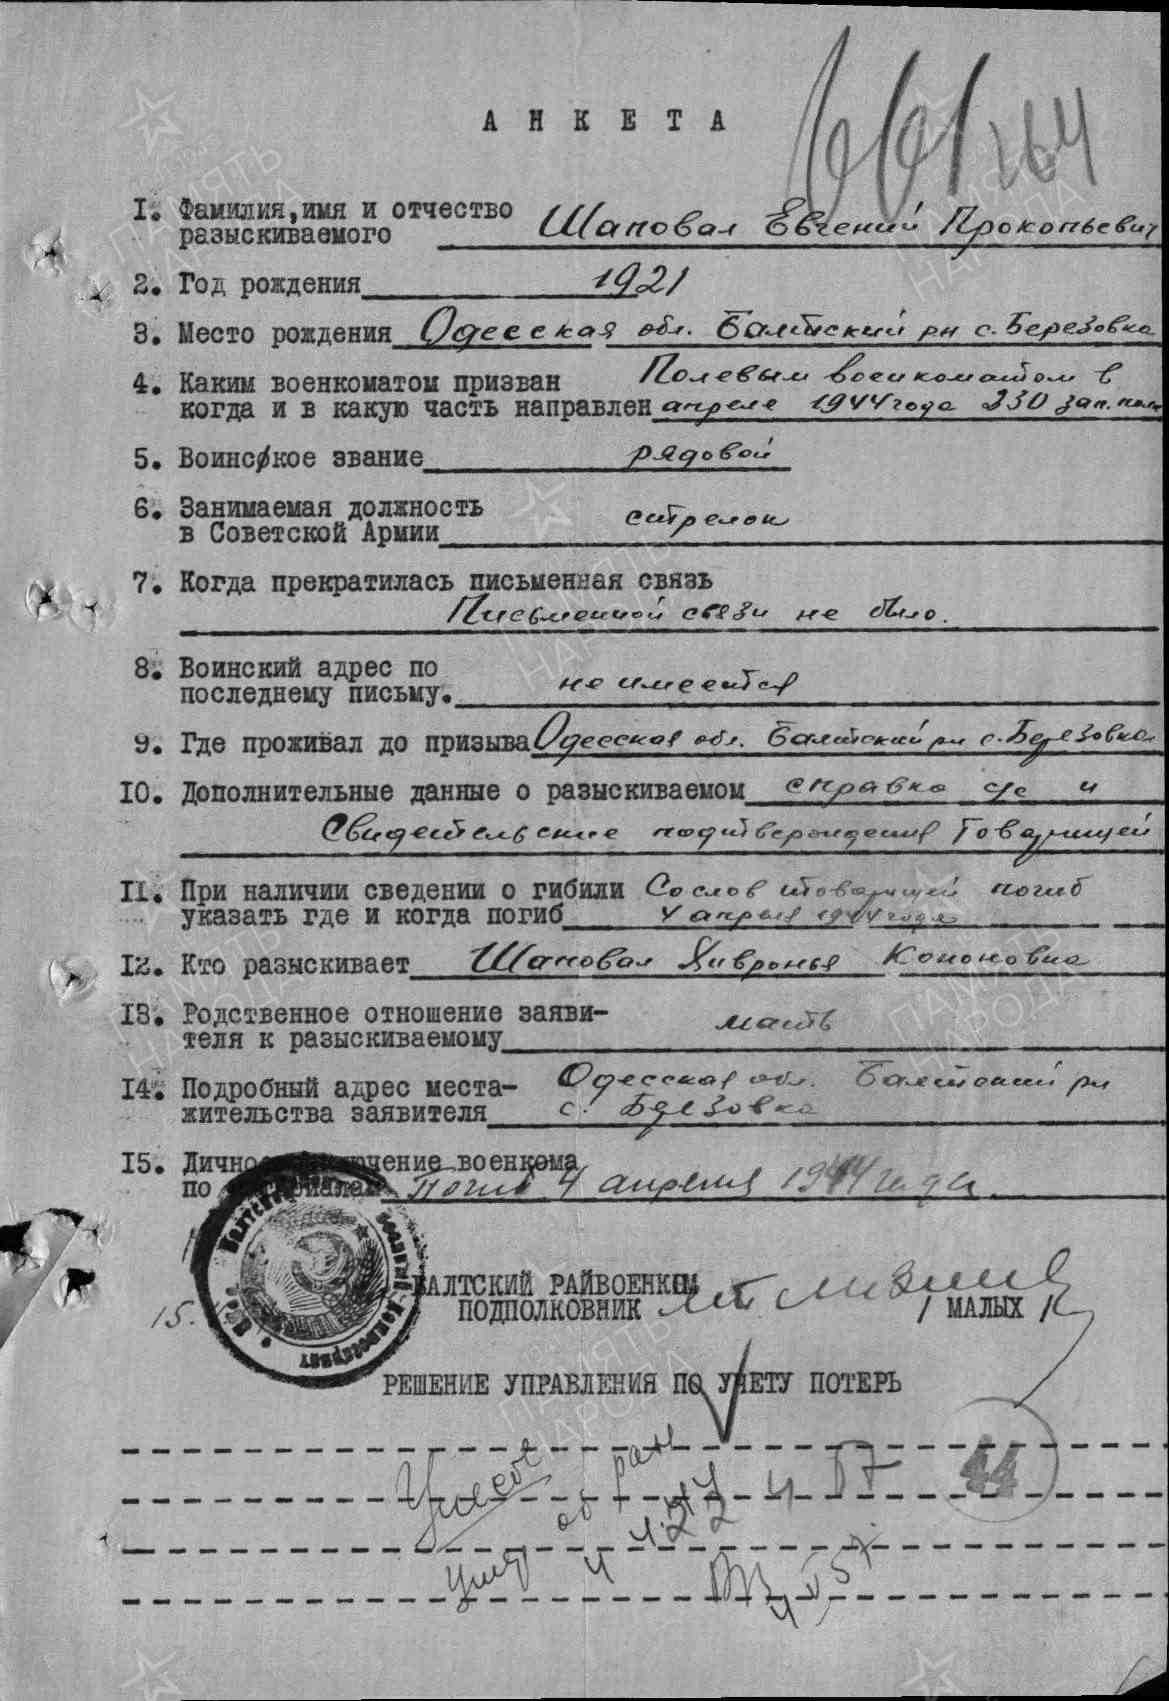 661
164
АНКЕТА
1. Фамилия, имя и отчество
разыскиваемого Шаповал Евгений Прокопьевич
2. Год рождения 1921
3. Место рождения Одесская обл. Балтский рн с. Березовка
4. Каким военкоматом призван Полевым военкоматом в
когда и в какую часть направлен апреле 1944 года 230 зап. полк
5. Воинское звание рядовой
6. Занимаемая должность
в Советской Армии стрелок
7. Когда прекратилась письменная связь
Письменной связи не было.
8. Воинский адрес по
последнему письму. не имеется
9. Где проживал до призыва Одесская обл. Балтский рн с. Березовка
10. Дополнительные данные о разыскиваемом справка с/с и
Свидетельские подтверждения товарищей
11. При наличии сведении о гибили Со слов товарищей погиб
указать где и когда погиб 4 апреля 1944 года
12. Кто разыскивает Шаповал Хивронья Кононовна
13. Родственное отношение заяви-
теля к разыскиваемому мать
14. Подробный адрес места- Одесская обл. Балтский рн
жительства заявителя с. Березовка
15. Личное заключение военкома
по материалам Погиб 4 апреля 1944 года
БАЛТСКИЙ РАЙВОЕНКОМ
ПОДПОЛКОВНИК / МАЛЫХ /
15.
РЕШЕНИЕ УПРАВЛЕНИЯ ПО УЧЕТУ ПОТЕРЬ
44
ПАМЯТЬ
НАРОДА